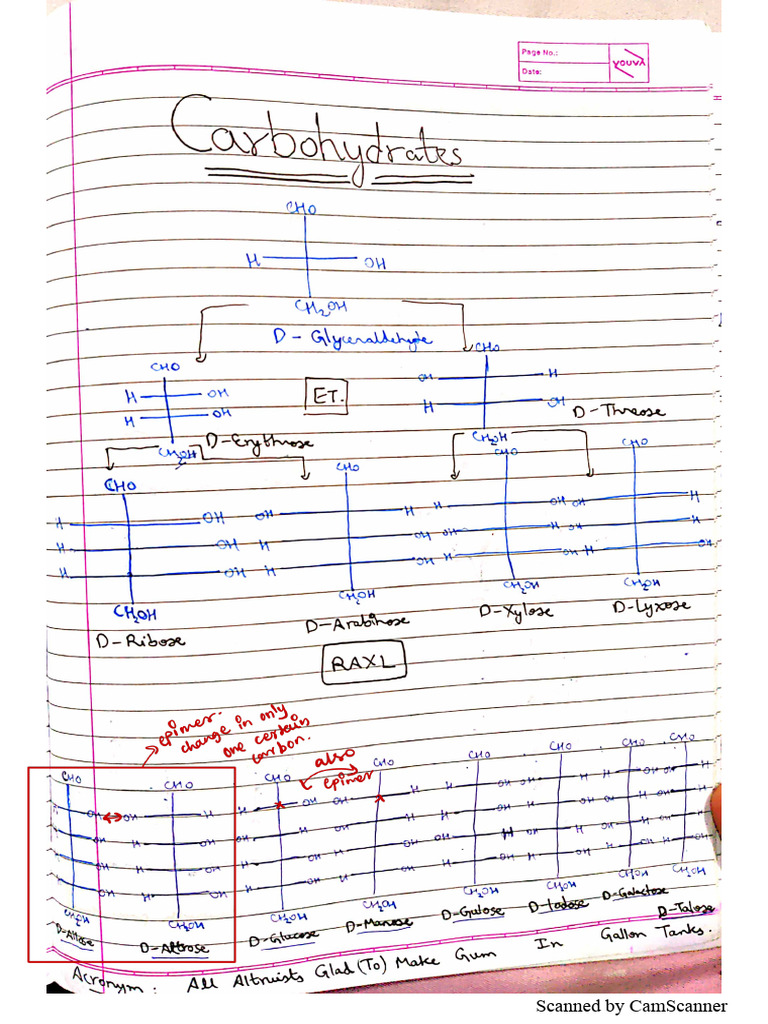 Page No.:
Date:
YOUVA
Carbohydrates
CHO
H OH
CH2OH
D - Glyceraldehyde
CHO CHO
H OH ET. OH H
H OH H OH
D-Erythrose D-Threose
CH2OH CH2OH
CHO CHO CHO CHO
H OH OH H H OH OH H
H OH H OH OH H OH H
H OH H OH H OH H OH
CH2OH CH2OH CH2OH CH2OH
D-Ribose D-Arabinose D-Xylose D-Lyxose
RAXL
epimer.
change in only
one certain
carbon.
also
epimer
CHO CHO CHO CHO CHO CHO CHO CHO
CH2OH CH2OH CH2OH CH2OH CH2OH CH2OH CH2OH CH2OH
D-Allose D-Altrose D-Glucose D-Manose D-Gulose D-Iodose D-Galactose D-Talose
Acronym: All Altruists Glad (To) Make Gum In Gallon Tanks.
Scanned by CamScanner